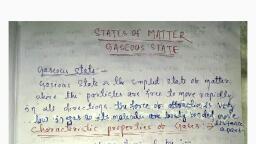 STATES OF MATTER
GASEOUS STATE
Gaseous State -
Gaseous State is the simplest state of matter,
where the particles are free to move rapidly
in all directions. The force of attraction is very
low in gas as its molecules are
more
distance
Characteristic properties of Gases :-
apart.